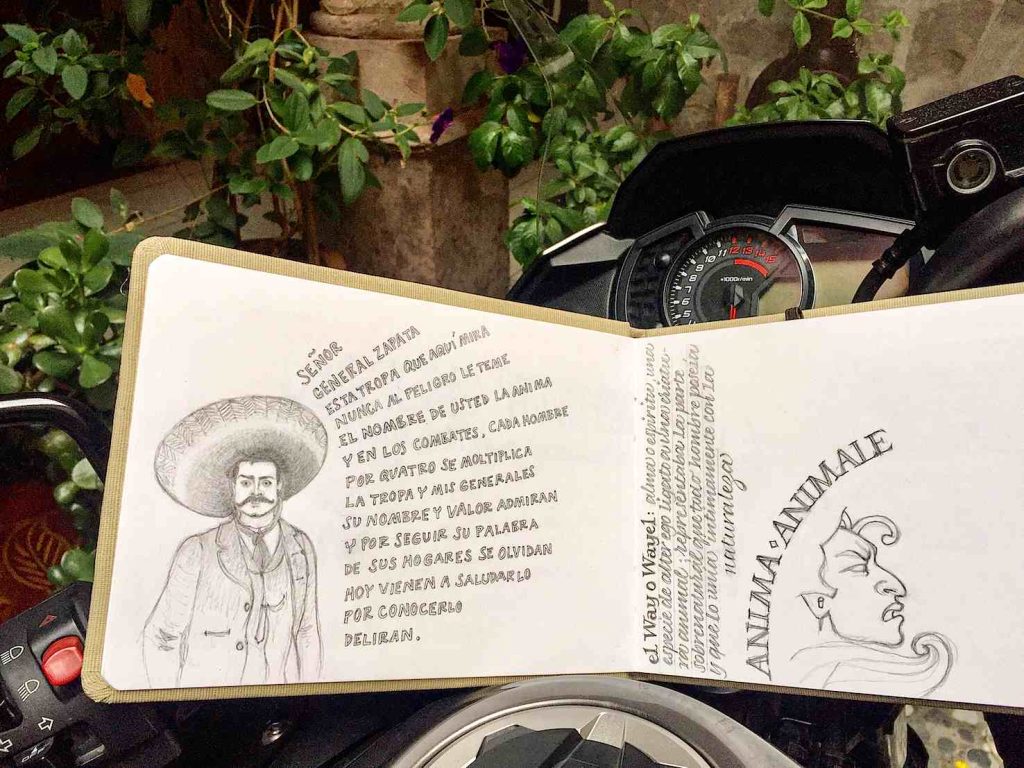 SEÑOR
GENERAL ZAPATA
ESTA TROPA QUE AQUÍ MIRA
NUNCA AL PELIGRO LE TEME
EL NOMBRE DE USTED LA ANIMA
Y EN LOS COMBATES, CADA HOMBRE
POR QUATRO SE MOLTIPLICA
LA TROPA Y MIS GENERALES
SU NOMBRE Y VALOR ADMIRAN
Y POR SEGUIR SU PALABRA
DE SUS HOGARES SE OLVIDAN
HOY VIENEN A SALUDARLO
POR CONOCERLO
DELIRAN.
el Way o Wayel: alma o espiritu, una
especie de alter ego ligato a una chiatu-
ra animal; represéntaba la parte
sobrenatural que todo hombre poseia
y que lo unia intimamente con la
naturaleza
ANIMA·ANIMALE
5 6 7 8 9 10 11 12 13 14 15
×1000r/min